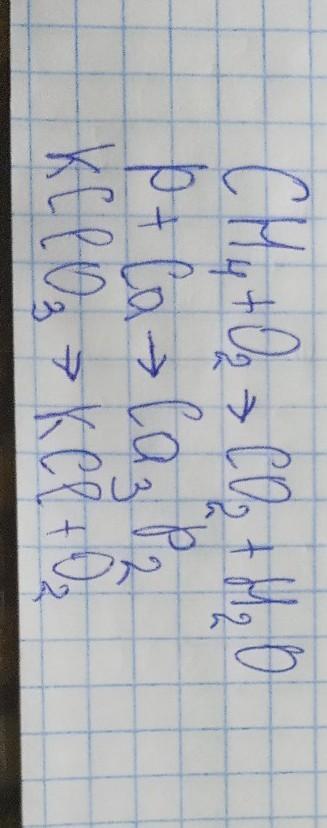 CH₄ + O₂ → CO₂ + H₂O
P + Ca → Ca₃P₂
KClO₃ → KCl + O₂